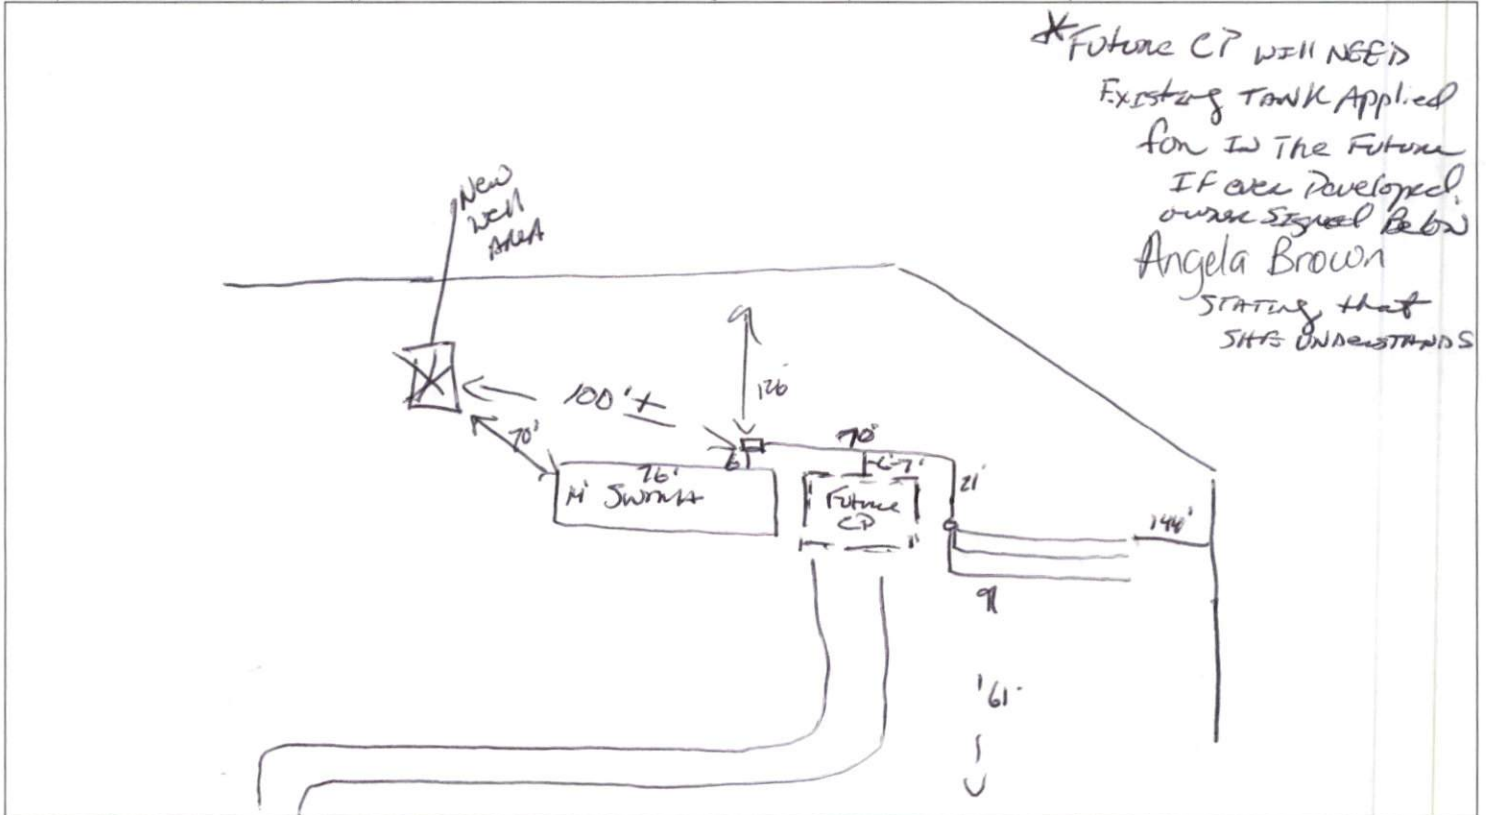 *Future CP will NEED
Existing TANK Applied
for In The Future
If ever Developed.
owner Signed Below
Angela Brown
STATING that
SHE UNDERSTANDS
New
Well
AREA
126'
100'±
70'
70'
6'
76'
6-7'
21'
Future
CP
144'
'61'